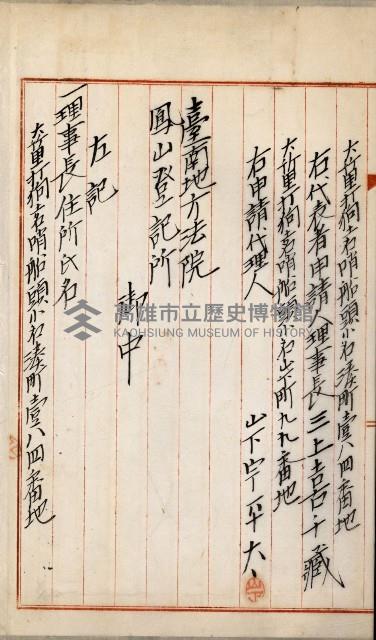 大竹里打狗庄哨船頭小名湊町壹八四番地
右代表者申請人理事長三上吉十藏
大竹里打狗庄哨船頭小名山下町九九番地
右申請代理人
山下
臺南地方法院
鳳山登記所
御中
左記
一理事長住所氏名
大竹里打狗庄哨船頭小名湊町壹八四番地
高雄市立歷史博物館
KAOHSIUNG MUSEUM OF HISTORY